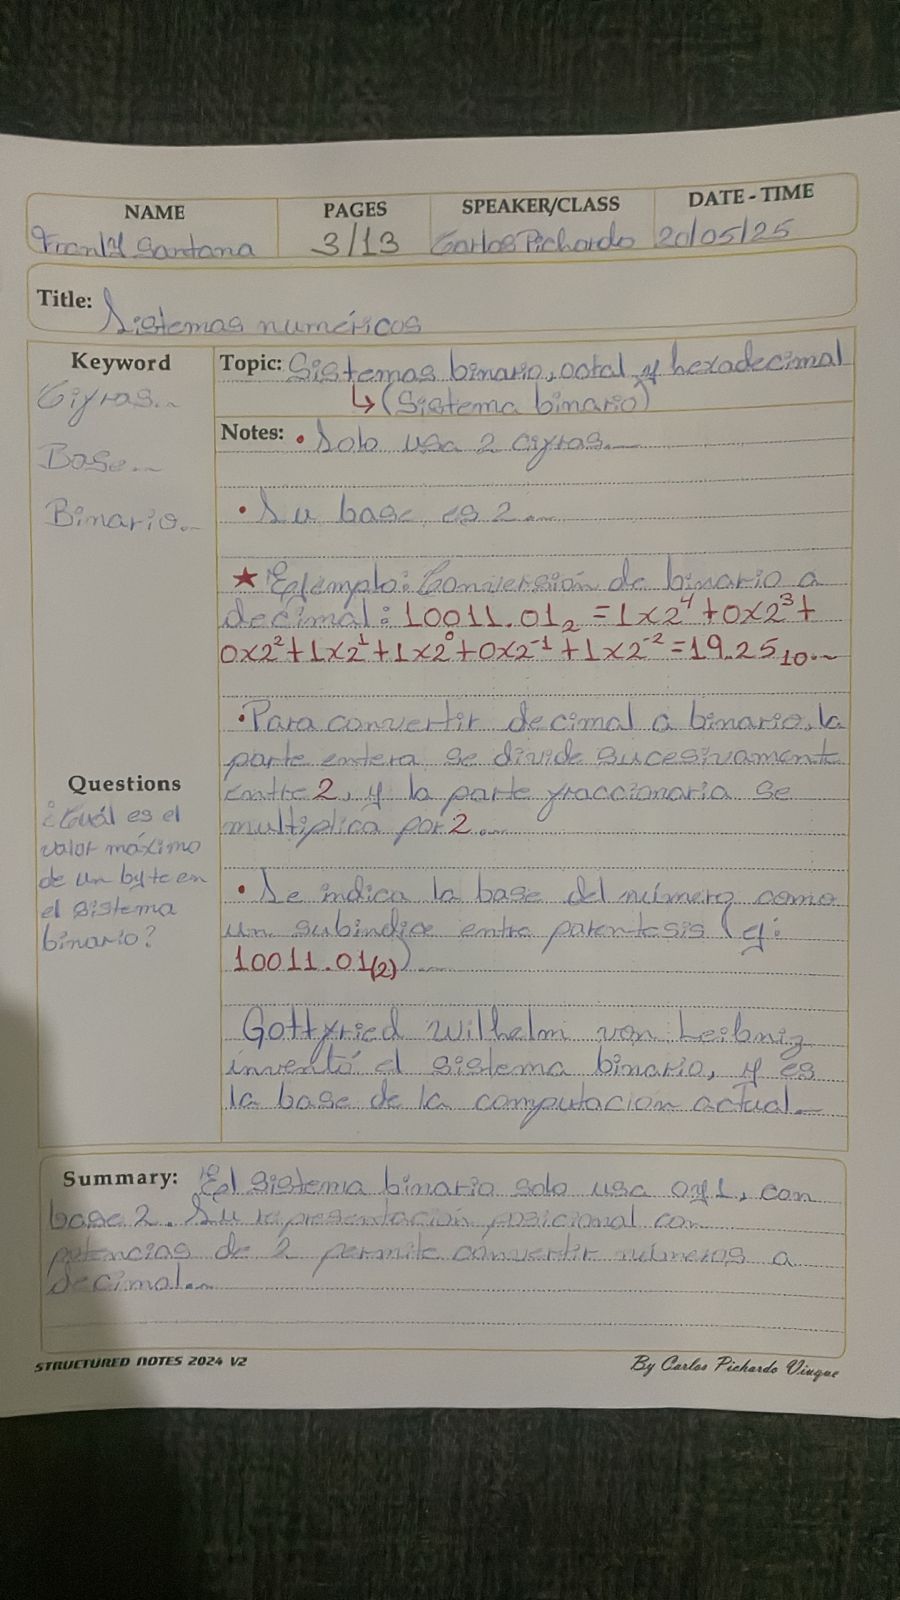 NAME PAGES SPEAKER/CLASS DATE - TIME
Franly Santana 3/13 Carlos Pichardo 20/05/25
Title: Sistemas numéricos
Keyword
Cifras...
Base...
Binario...
Topic: Sistemas binario, octal y hexadecimal
↳ (Sistema binario)
Notes: • Solo usa 2 cifras...
• Su base es 2...
★ Ejemplo: Conversión de binario a
decimal: 10011.01₂ = 1x2⁴ + 0x2³ +
0x2² + 1x2¹ + 1x2⁰ + 0x2⁻¹ + 1x2⁻² = 19.25₁₀...
• Para convertir decimal a binario, la
parte entera se divide sucesivamente
entre 2, y la parte fraccionaria se
multiplica por 2...
• Se indica la base del número como
un subíndice entre paréntesis (ej:
10011.01₍₂₎)...
Gottfried Wilhelm von Leibniz
inventó el sistema binario, y es
la base de la computación actual...
Questions
¿Cuál es el
valor máximo
de un byte en
el sistema
binario?
Summary: El sistema binario solo usa 0 y 1, con
base 2. Su representación posicional con
potencias de 2 permite convertir números a
decimal...
STRUCTURED NOTES 2024 V2 By Carlos Pichardo Viuque